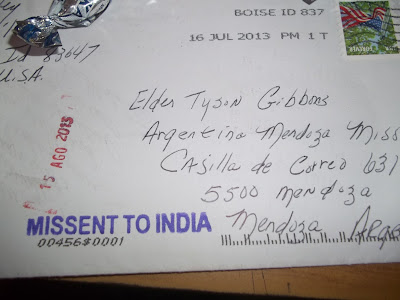 BOISE ID 837
16 JUL 2013 PM 1 T
Id 83647
U.S.A.
Elder Tyson Gibbons
Argentina Mendoza Miss
Casilla de Correo 631
5500 Mendoza
Mendoza
15 AGO 2013
MISSENT TO INDIA
00456$0001